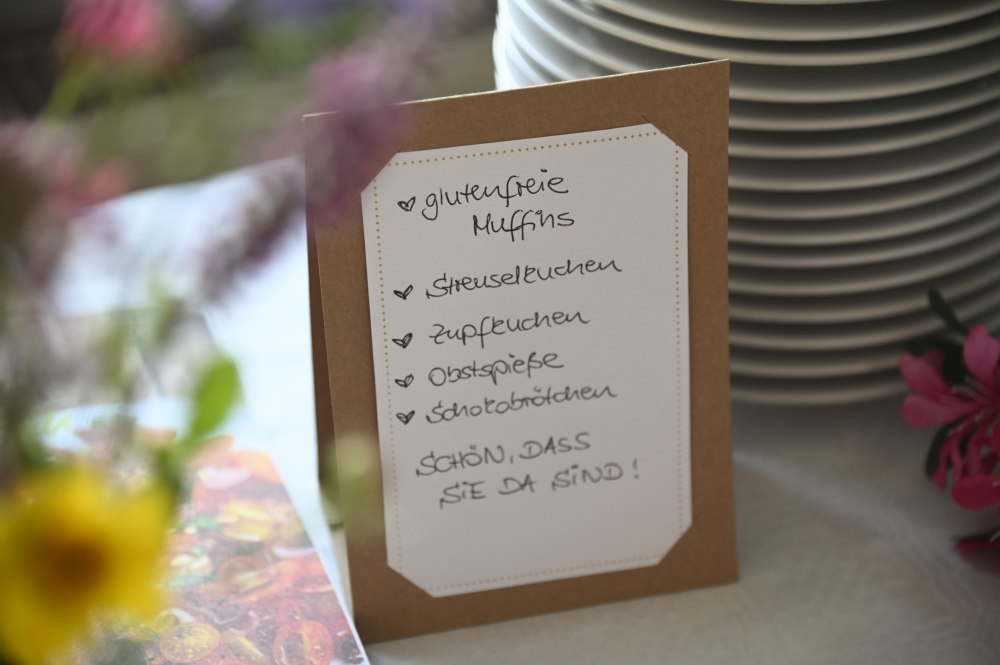 glutenfreie
Muffins
Streuselkuchen
Zupfkuchen
Obstspieße
Schokobrötchen
SCHÖN, DASS
SIE DA SIND!